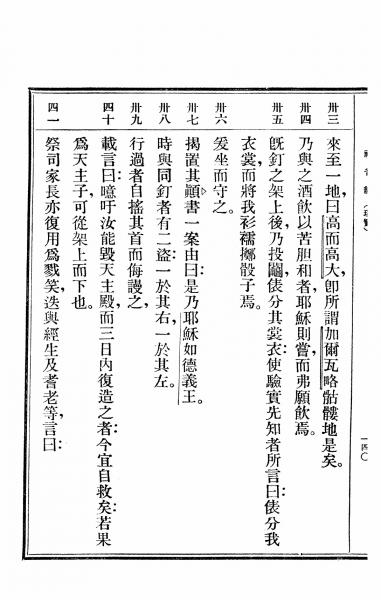 卅三 來至一地曰高而高大卽所謂加爾瓦略骷髏地是矣。
卅四 乃與之酒飲以苦胆和者耶穌則嘗而弗願飲焉。
卅五 旣釘之架上後乃投鬮俵分其裳衣使驗實先知者所言曰俵分我
衣裳而將我衫襦擲骰子焉。
卅六 爰坐而守之。
卅七 揭置其顚書一案由曰是乃耶穌如德義王。
卅八 時與同釘者有二盜一於其右一於其左。
卅九 行過者自搖其首而侮謾之
四十 載言曰噫吁汝能毀天主殿而三日內復造之者今宜自救矣若果
爲天主子可從架上而下也。
四一 祭司家長亦復用爲戮笑迭與經生及耆老等言曰
一四〇